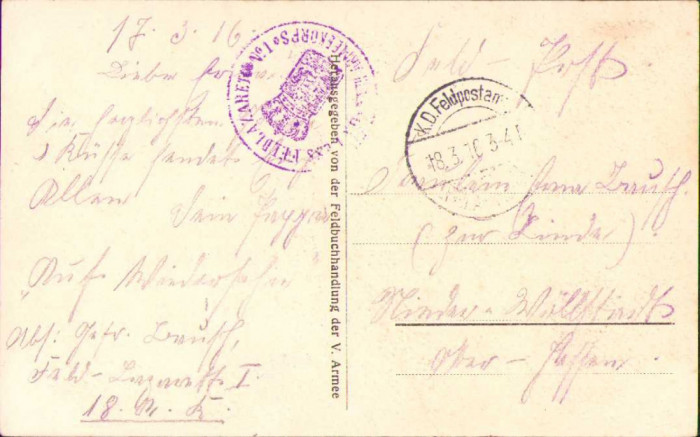 17. 3. 16
Liebe
die herzlichsten
Küsse sendet
Allen
Dein Pappa
"Auf Wiedersehn"
Abs: Gefr. Bausch,
Feld-Lazarett I.
18. A. K.
FELDLAZARETT
ARMEEKORPS
Herausgegeben von der Feldbuchhandlung der V. Armee
Feld-Post
K.D. Feldpostam
18.3.16 3-4
Bausch
(zur Linde)
Nieder-Wöllstadt
Ober-Hessen